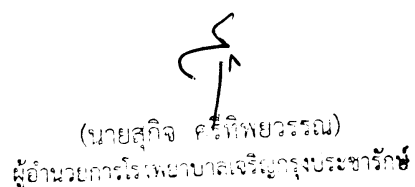 (นายสุกิจ ศรีทิพยวรรณ)
ผู้อำนวยการโรงพยาบาลเจริญกรุงประชารักษ์